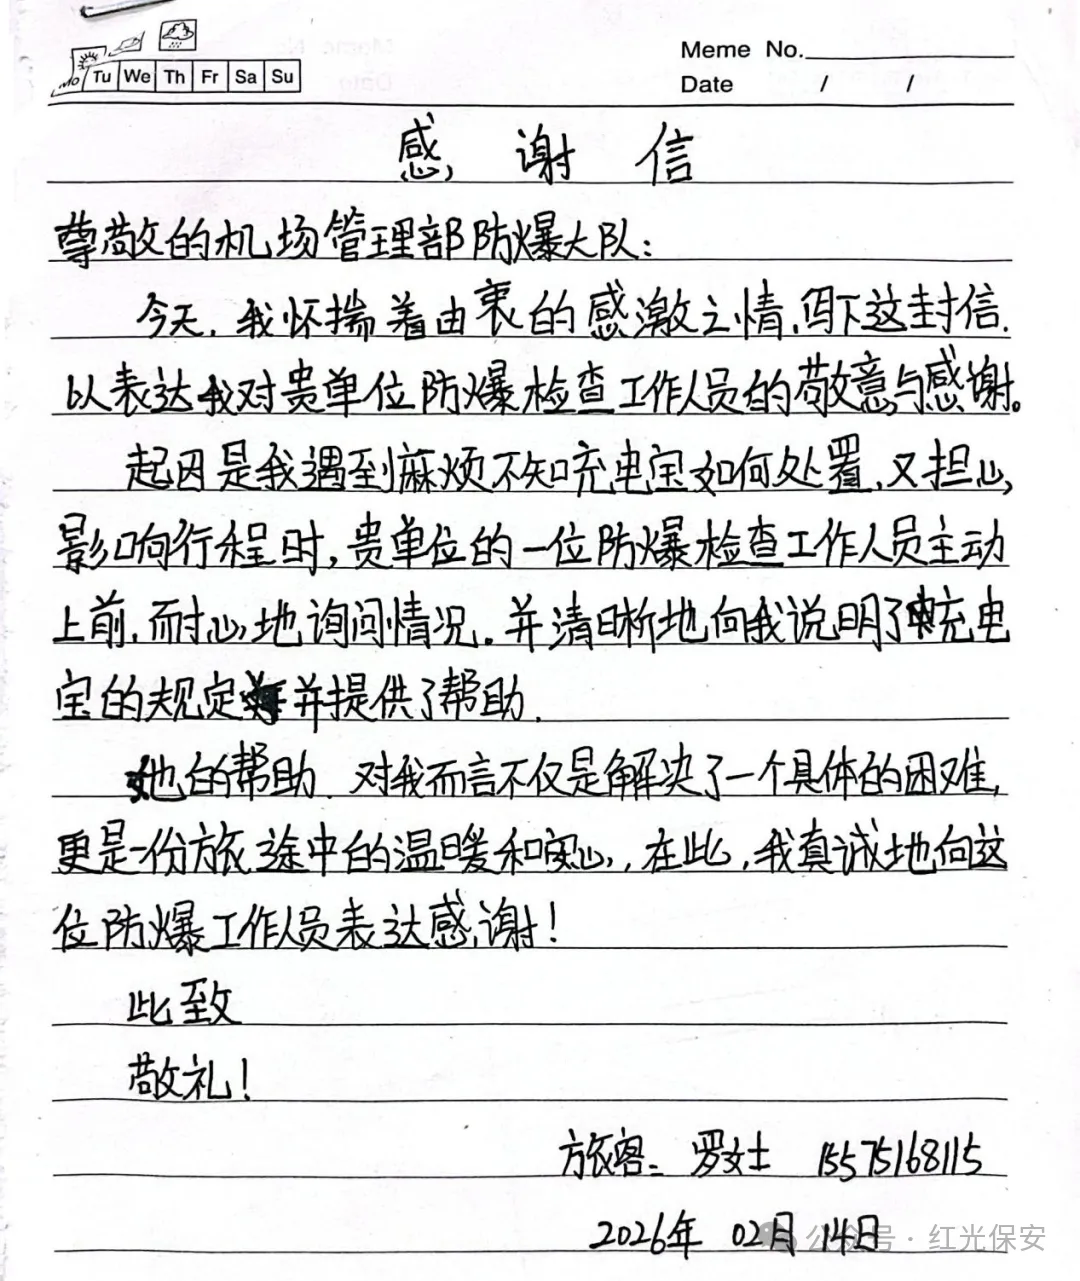 Meme No.
Mo Tu We Th Fr Sa Su
Date / /
感谢信
尊敬的机场管理部防爆大队：
今天，我怀揣着由衷的感激之情，写下这封信，
以表达我对贵单位防爆检查工作人员的敬意与感谢。
起因是我遇到麻烦不知充电宝如何处置，又担心
影响行程时，贵单位的一位防爆检查工作人员主动
上前，而耐心地询问情况。并清晰地向我说明了充电
宝的规定并提供了帮助。
她的帮助．对我而言不仅是解决了一个具体的困难，
更是一份旅途中的温暖和安心，在此，我真诚地向这
位防爆工作人员表达感谢！
此致
敬礼！
旅客：罗女士 15575168115
2026年 02月 14日
公众号·红光保安